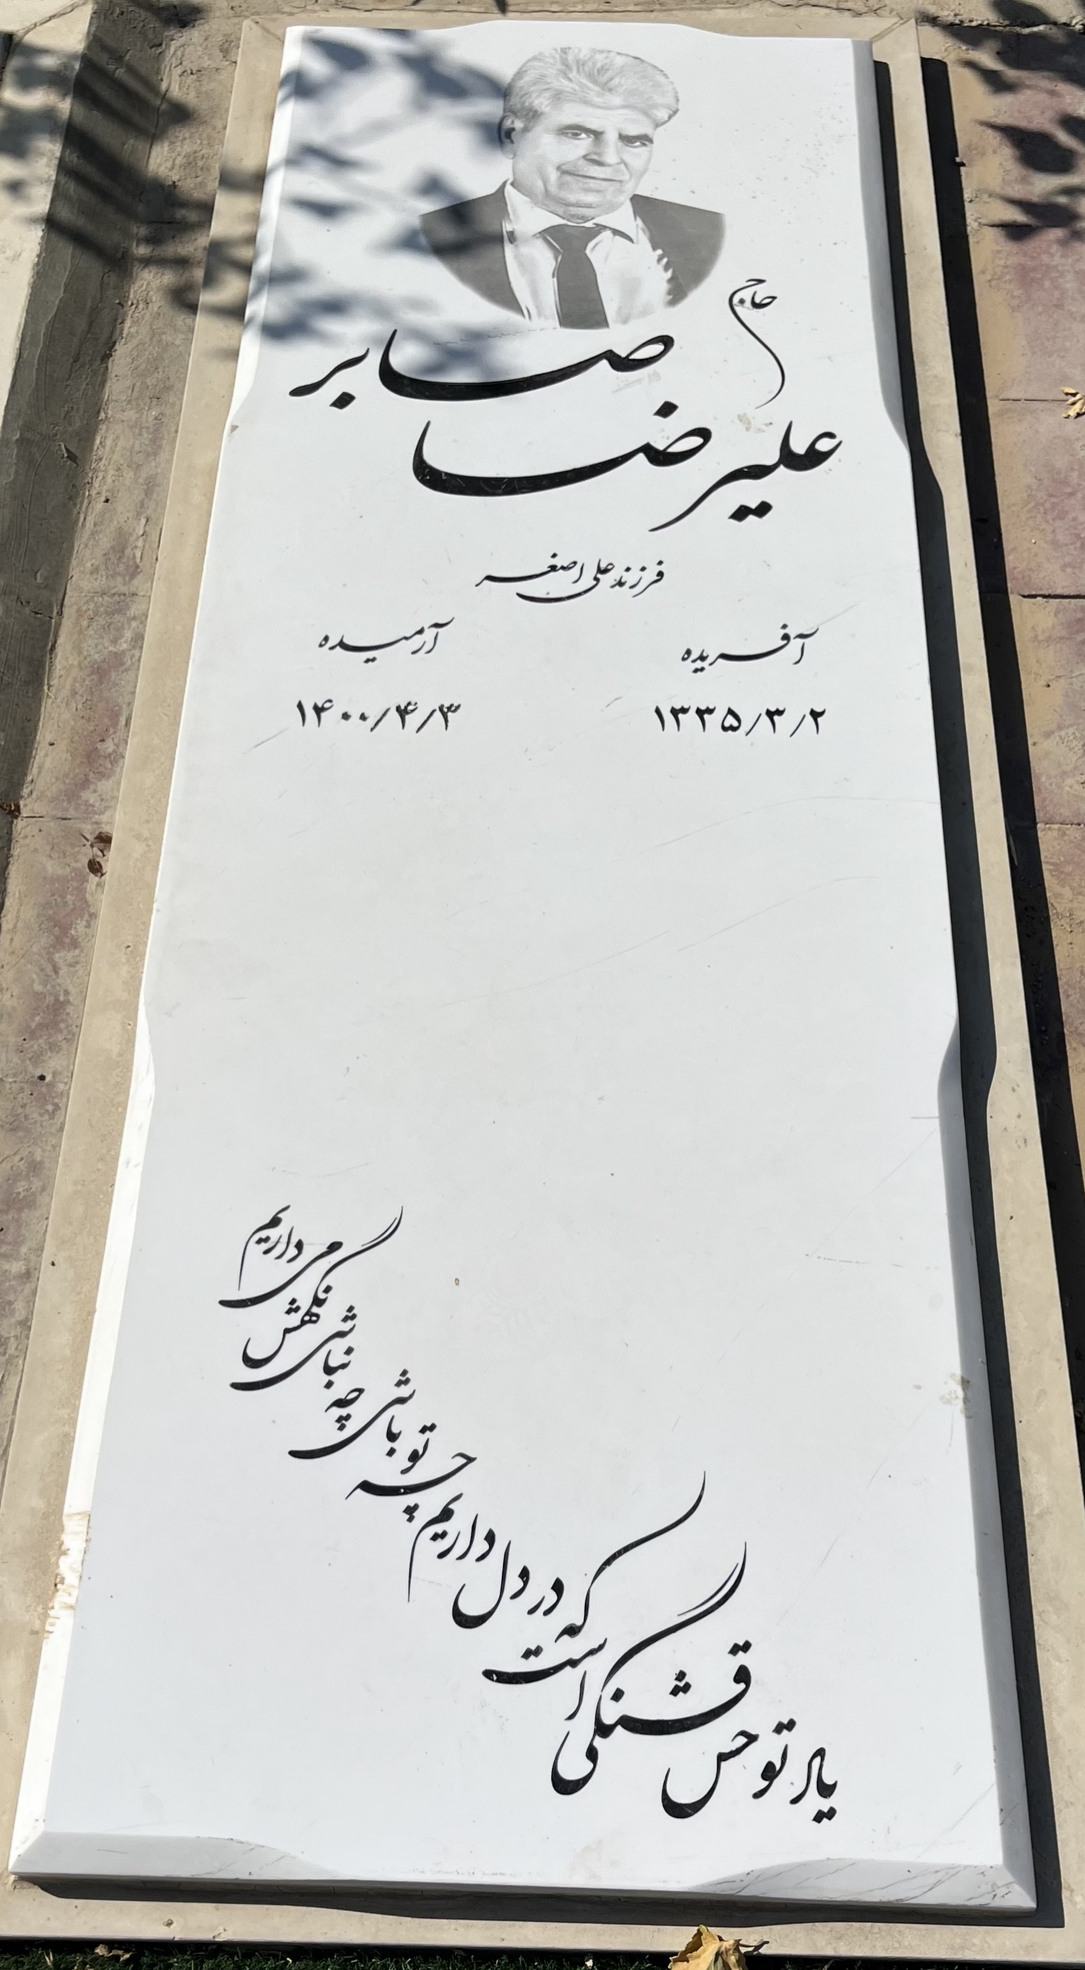 حاج
علیرضا صابر
فرزند علی اصغر
آفریده
۱۳۳۵/۳/۲
آرمیده
۱۴۰۰/۴/۳
یاد تو حس قشنگی است که در دل داریم
چه تو باشی چه نباشی نگهش می داریم